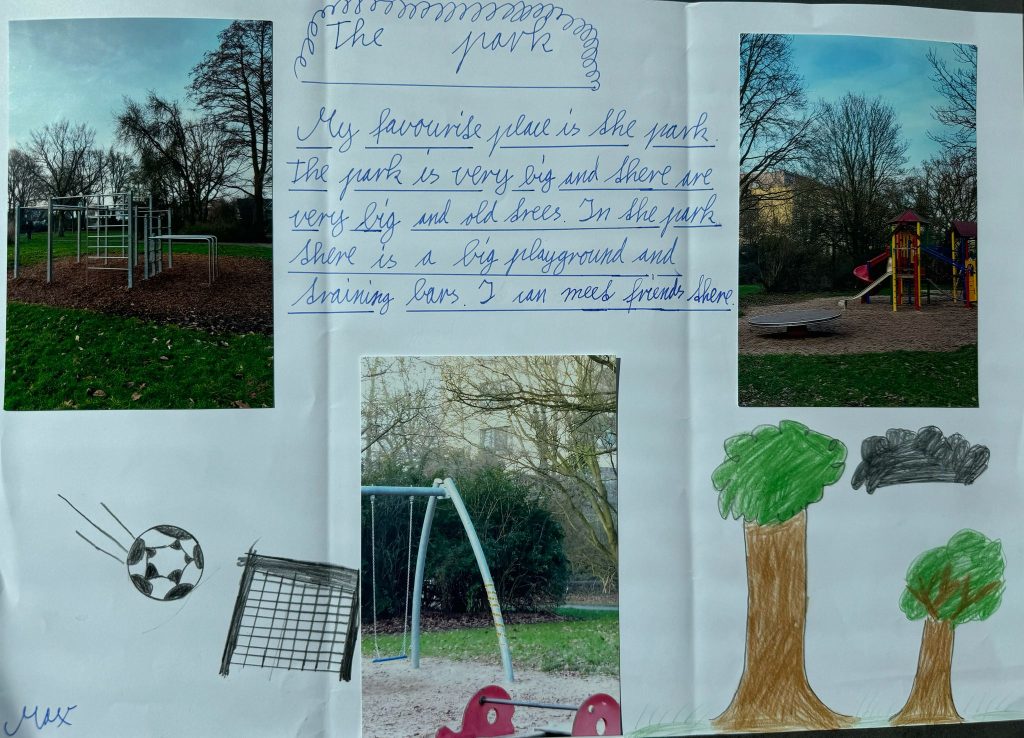 The park
My favourite place is the park.
The park is very big and there are
very big and old trees. In the park
there is a big playground and
training bars. I can meet friends there.
Max